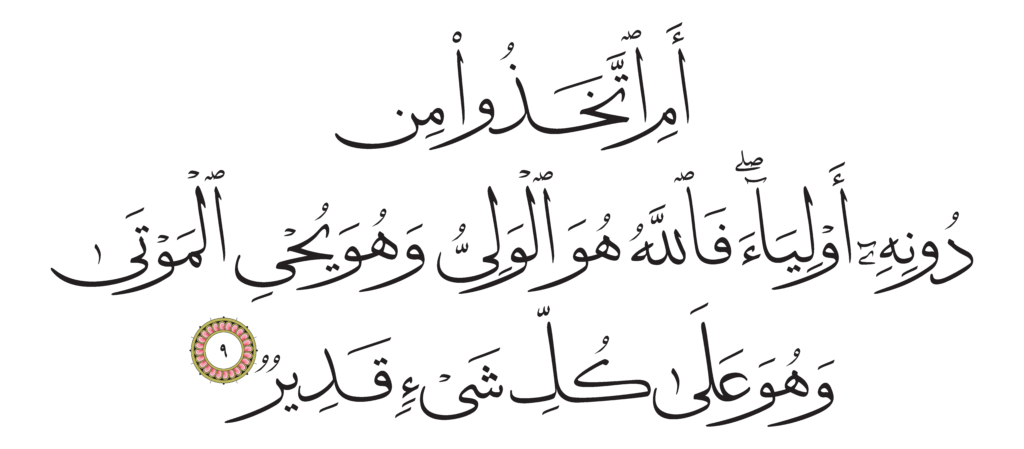 أَمِ ٱتَّخَذُوا۟ مِن
دُونِهِۦٓ أَوْلِيَآءَ ۖ فَٱللَّهُ هُوَ ٱلْوَلِىُّ وَهُوَ يُحْىِ ٱلْمَوْتَىٰ
وَهُوَ عَلَىٰ كُلِّ شَىْءٍ قَدِيرٌ ٩